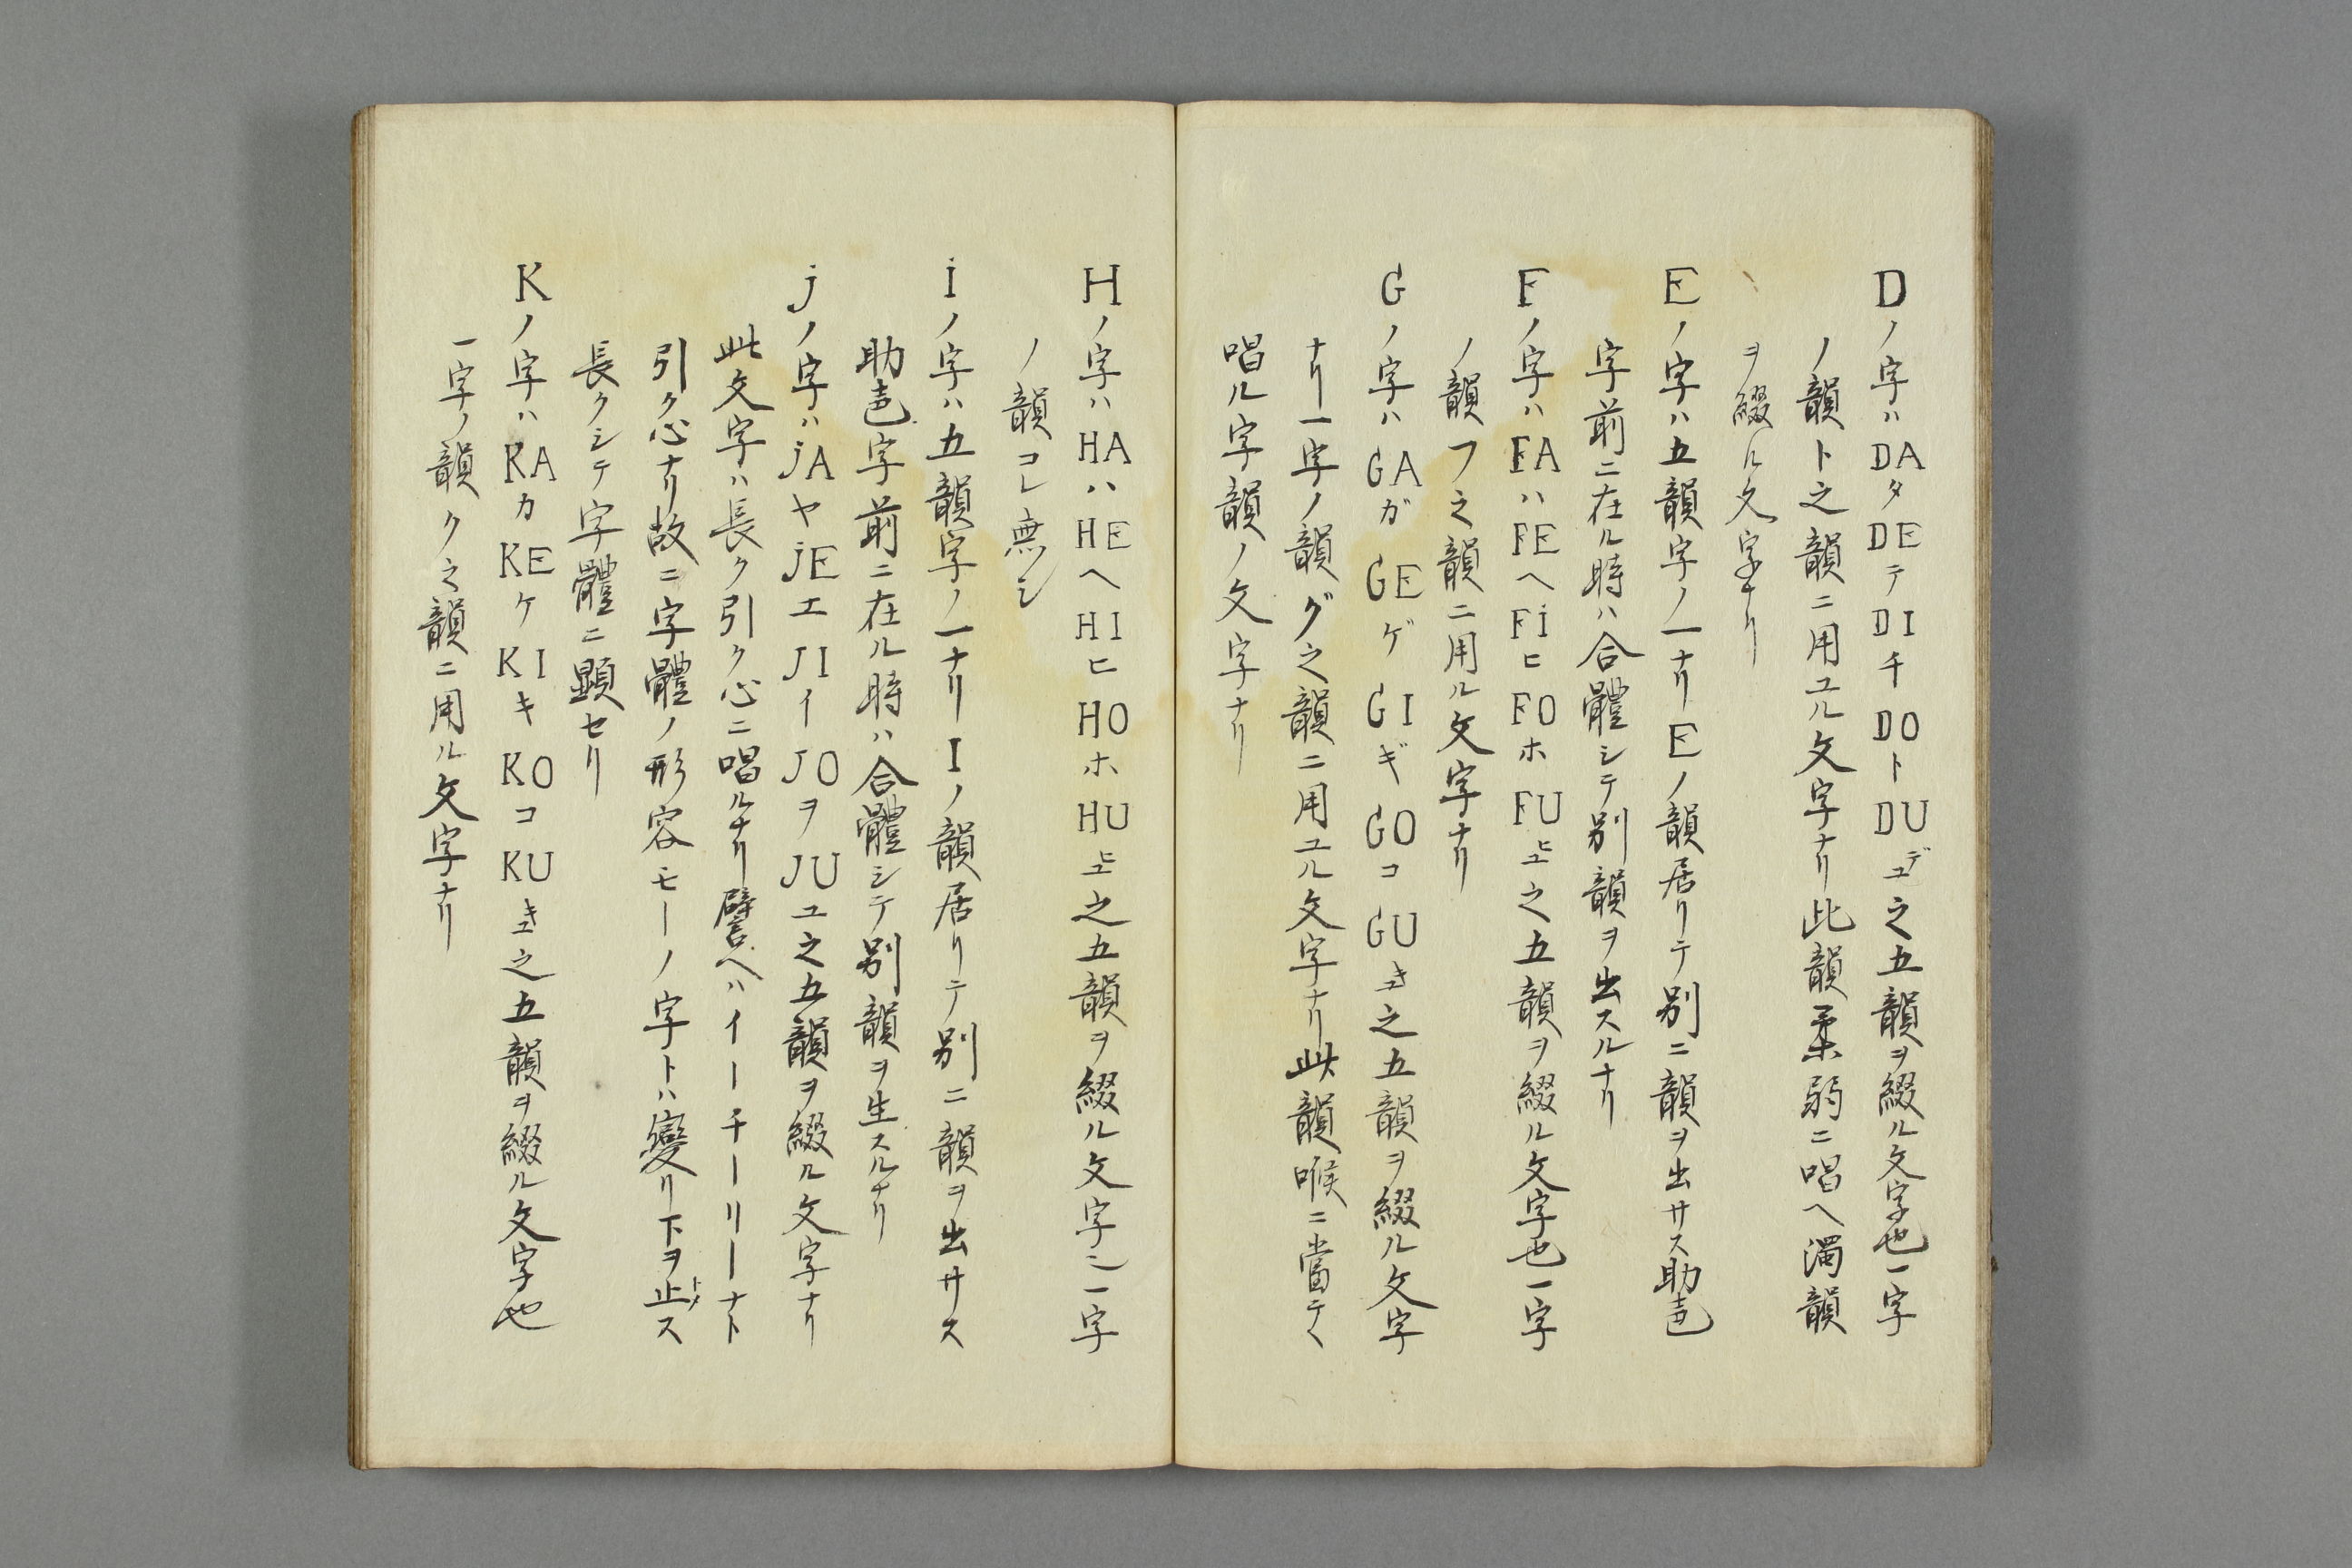 Dノ字ハDAタDEテDIチDOトDUデュ之五韻ヲ綴ル文字也一字
ノ韻ト之韻ニ用ユル文字ナリ此韻柔弱ニ唱ヘ濁韻
ヲ綴ル文字ナリ
Eノ字ハ五韻字ノ一ナリEノ韻居リテ別ニ韻ヲ出サス助声
字前ニ在ル時ハ合體シテ別韻ヲ出スルナリ
Fノ字ハFAハFEヘFiヒFOホFUヒュ之五韻ヲ綴ル文字也一字
ノ韻フ之韻ニ用ル文字ナリ
Gノ字ハGAガGEゲGIギGOコGUキュ之五韻ヲ綴ル文字
ナリ一字ノ韻グ之韻ニ用ユル文字ナリ此韻喉ニ當テ〱
唱ル字韻ノ文字ナリ
Hノ字ハHAハHEヘHIヒHOホHUヒュ之五韻ヲ綴ル文字ニ一字
ノ韻コレ無シ
iノ字ハ五韻字ノ一ナリIノ韻居リテ別ニ韻ヲ出サス
助声字前ニ在ル時ハ合體シテ別韻ヲ生スルナリ
jノ字ハjAヤjEエJIイJOヲJUユ之五韻ヲ綴ル文字ナリ
此文字ハ長ク引ク心ニ唱ルナリ譬ヘハイーチーリーナト
引ク心ナリ故ニ字體ノ形容モーノ字トハ變リ下ヲ止トメス
長クシテ字體ニ顕セリ
Kノ字ハKAカKEケKIキKOコKUキュ之五韻ヲ綴ル文字也
一字ノ韻ク之韻ニ用ル文字ナリ